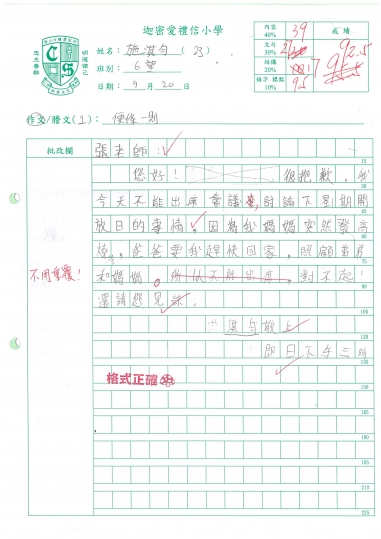 迦密愛禮信小學
姓名：施淇自 (23)
班別：6望
日期：9月20日
內容 40% 39
文句 30%
組織 20%
錯字 標點 10% 9.5
成績
92.5
作文/謄文(1)：便條一則
批改欄
張老師：
您好！很抱歉，我
今天不能出席會議，討論下星期開
放日的事情。因為我媽媽突然發高
燒，爸爸要我趕快回家，照顧弟弟
和媽媽。所以不能出席。對不起！
還請您見諒。
不用重覆！
施淇自敬上
即日下午三時
格式正確
15
30
45
60
75
90
105
120
135
150
165
180
195
210
225